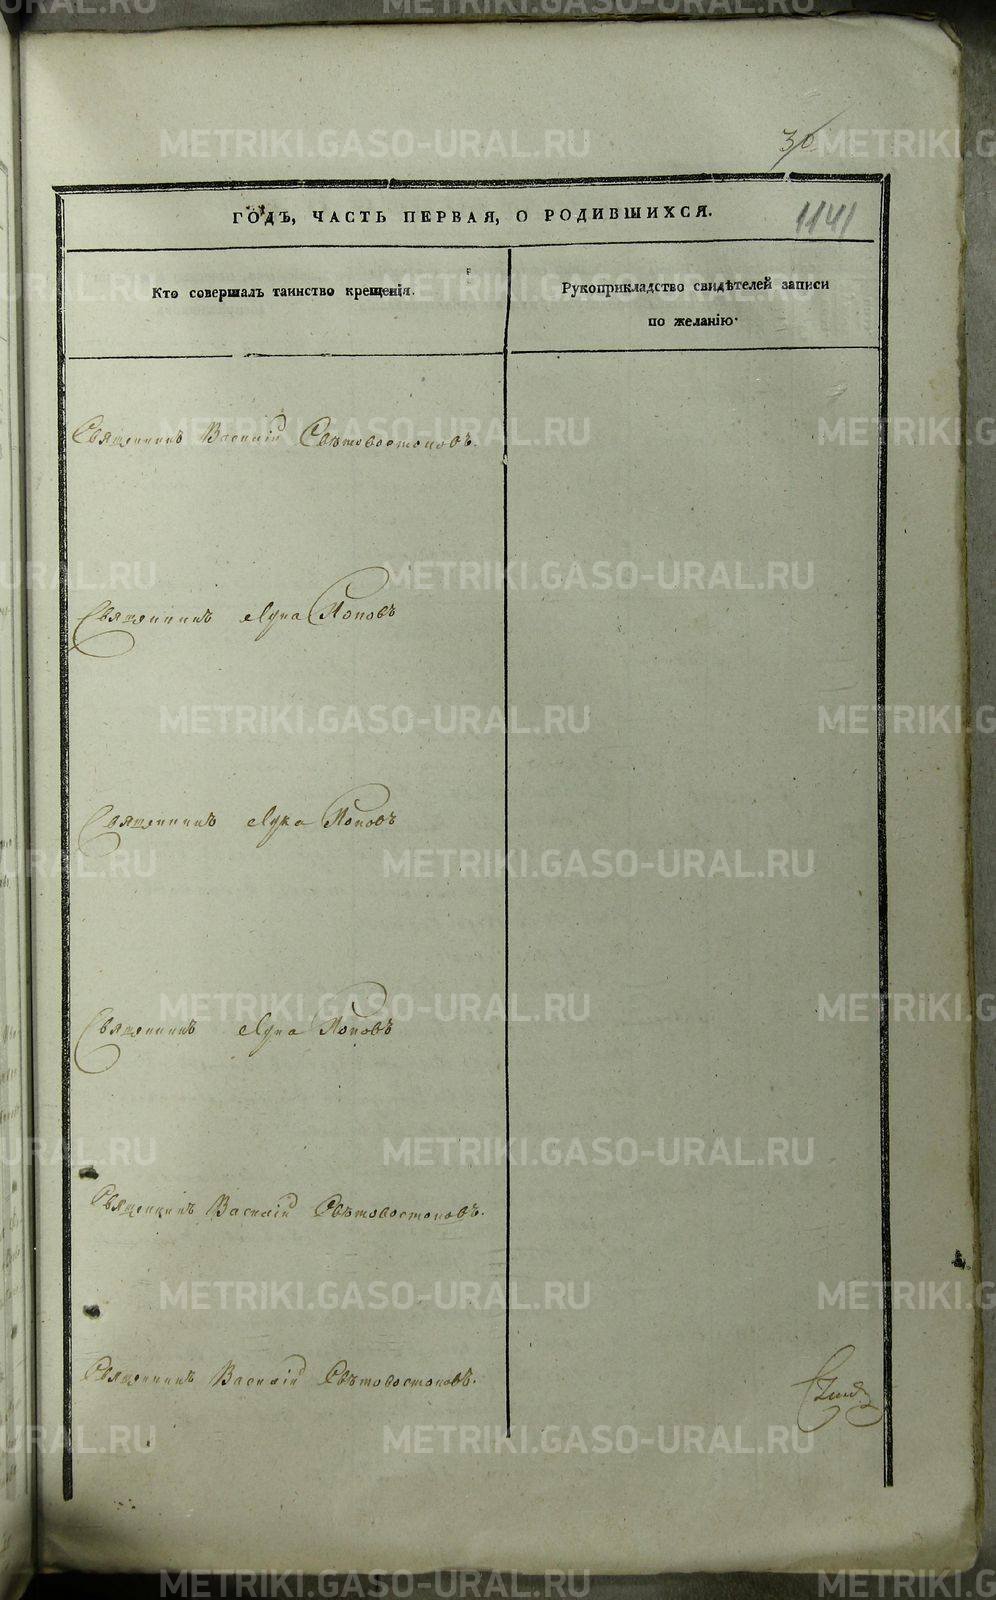 30
ГОДЪ, ЧАСТЬ ПЕРВАЯ, О РОДИВШИХСЯ.
1141
Кто совершалъ таинство крещенія.
Рукоприкладство свидѣтелей записи
по желанію.
Священникъ Василій Свѣтовостоковъ.
Священникъ Лука Поповъ
Священникъ Лука Поповъ
Священникъ Лука Поповъ
Священникъ Василій Свѣтовостоковъ.
Священникъ Василій Свѣтовостоковъ.
METRIKI.GASO-URAL.RU